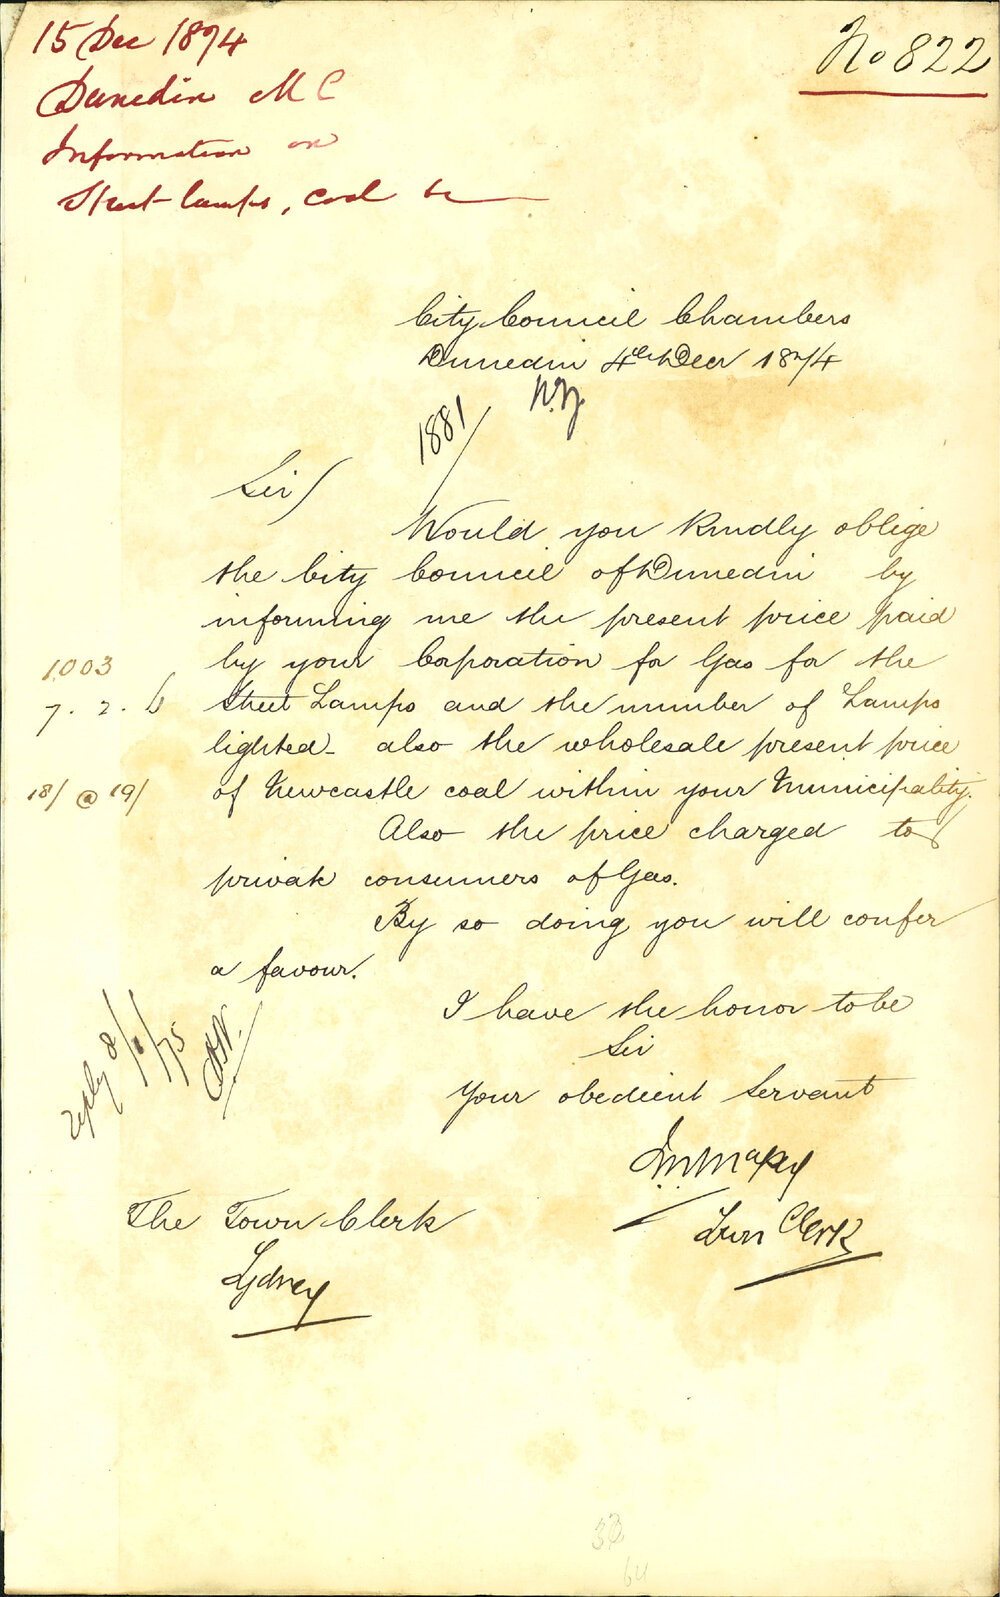 15 Dec 1874
No 822
Dunedin M C
Information on
Street lamps, coal &c
City Council Chambers
Dunedin 4th Decr 1874
N.Z.
1881
Sir/
Would you kindly oblige
the City Council of Dunedin by
informing me the present price paid
1003
by your Corporation for Gas for the
7. 2. 6
Street Lamps and the number of Lamps
lighted - also the wholesale present price
18/ @ 19/
of Newcastle coal within your Municipality.
Also the price charged to
private consumers of Gas.
By so doing you will confer
a favour.
I have the honor to be
Sir
Your obedient Servant
reply 8/1/75
Town Clerk
The Town Clerk
Sydney